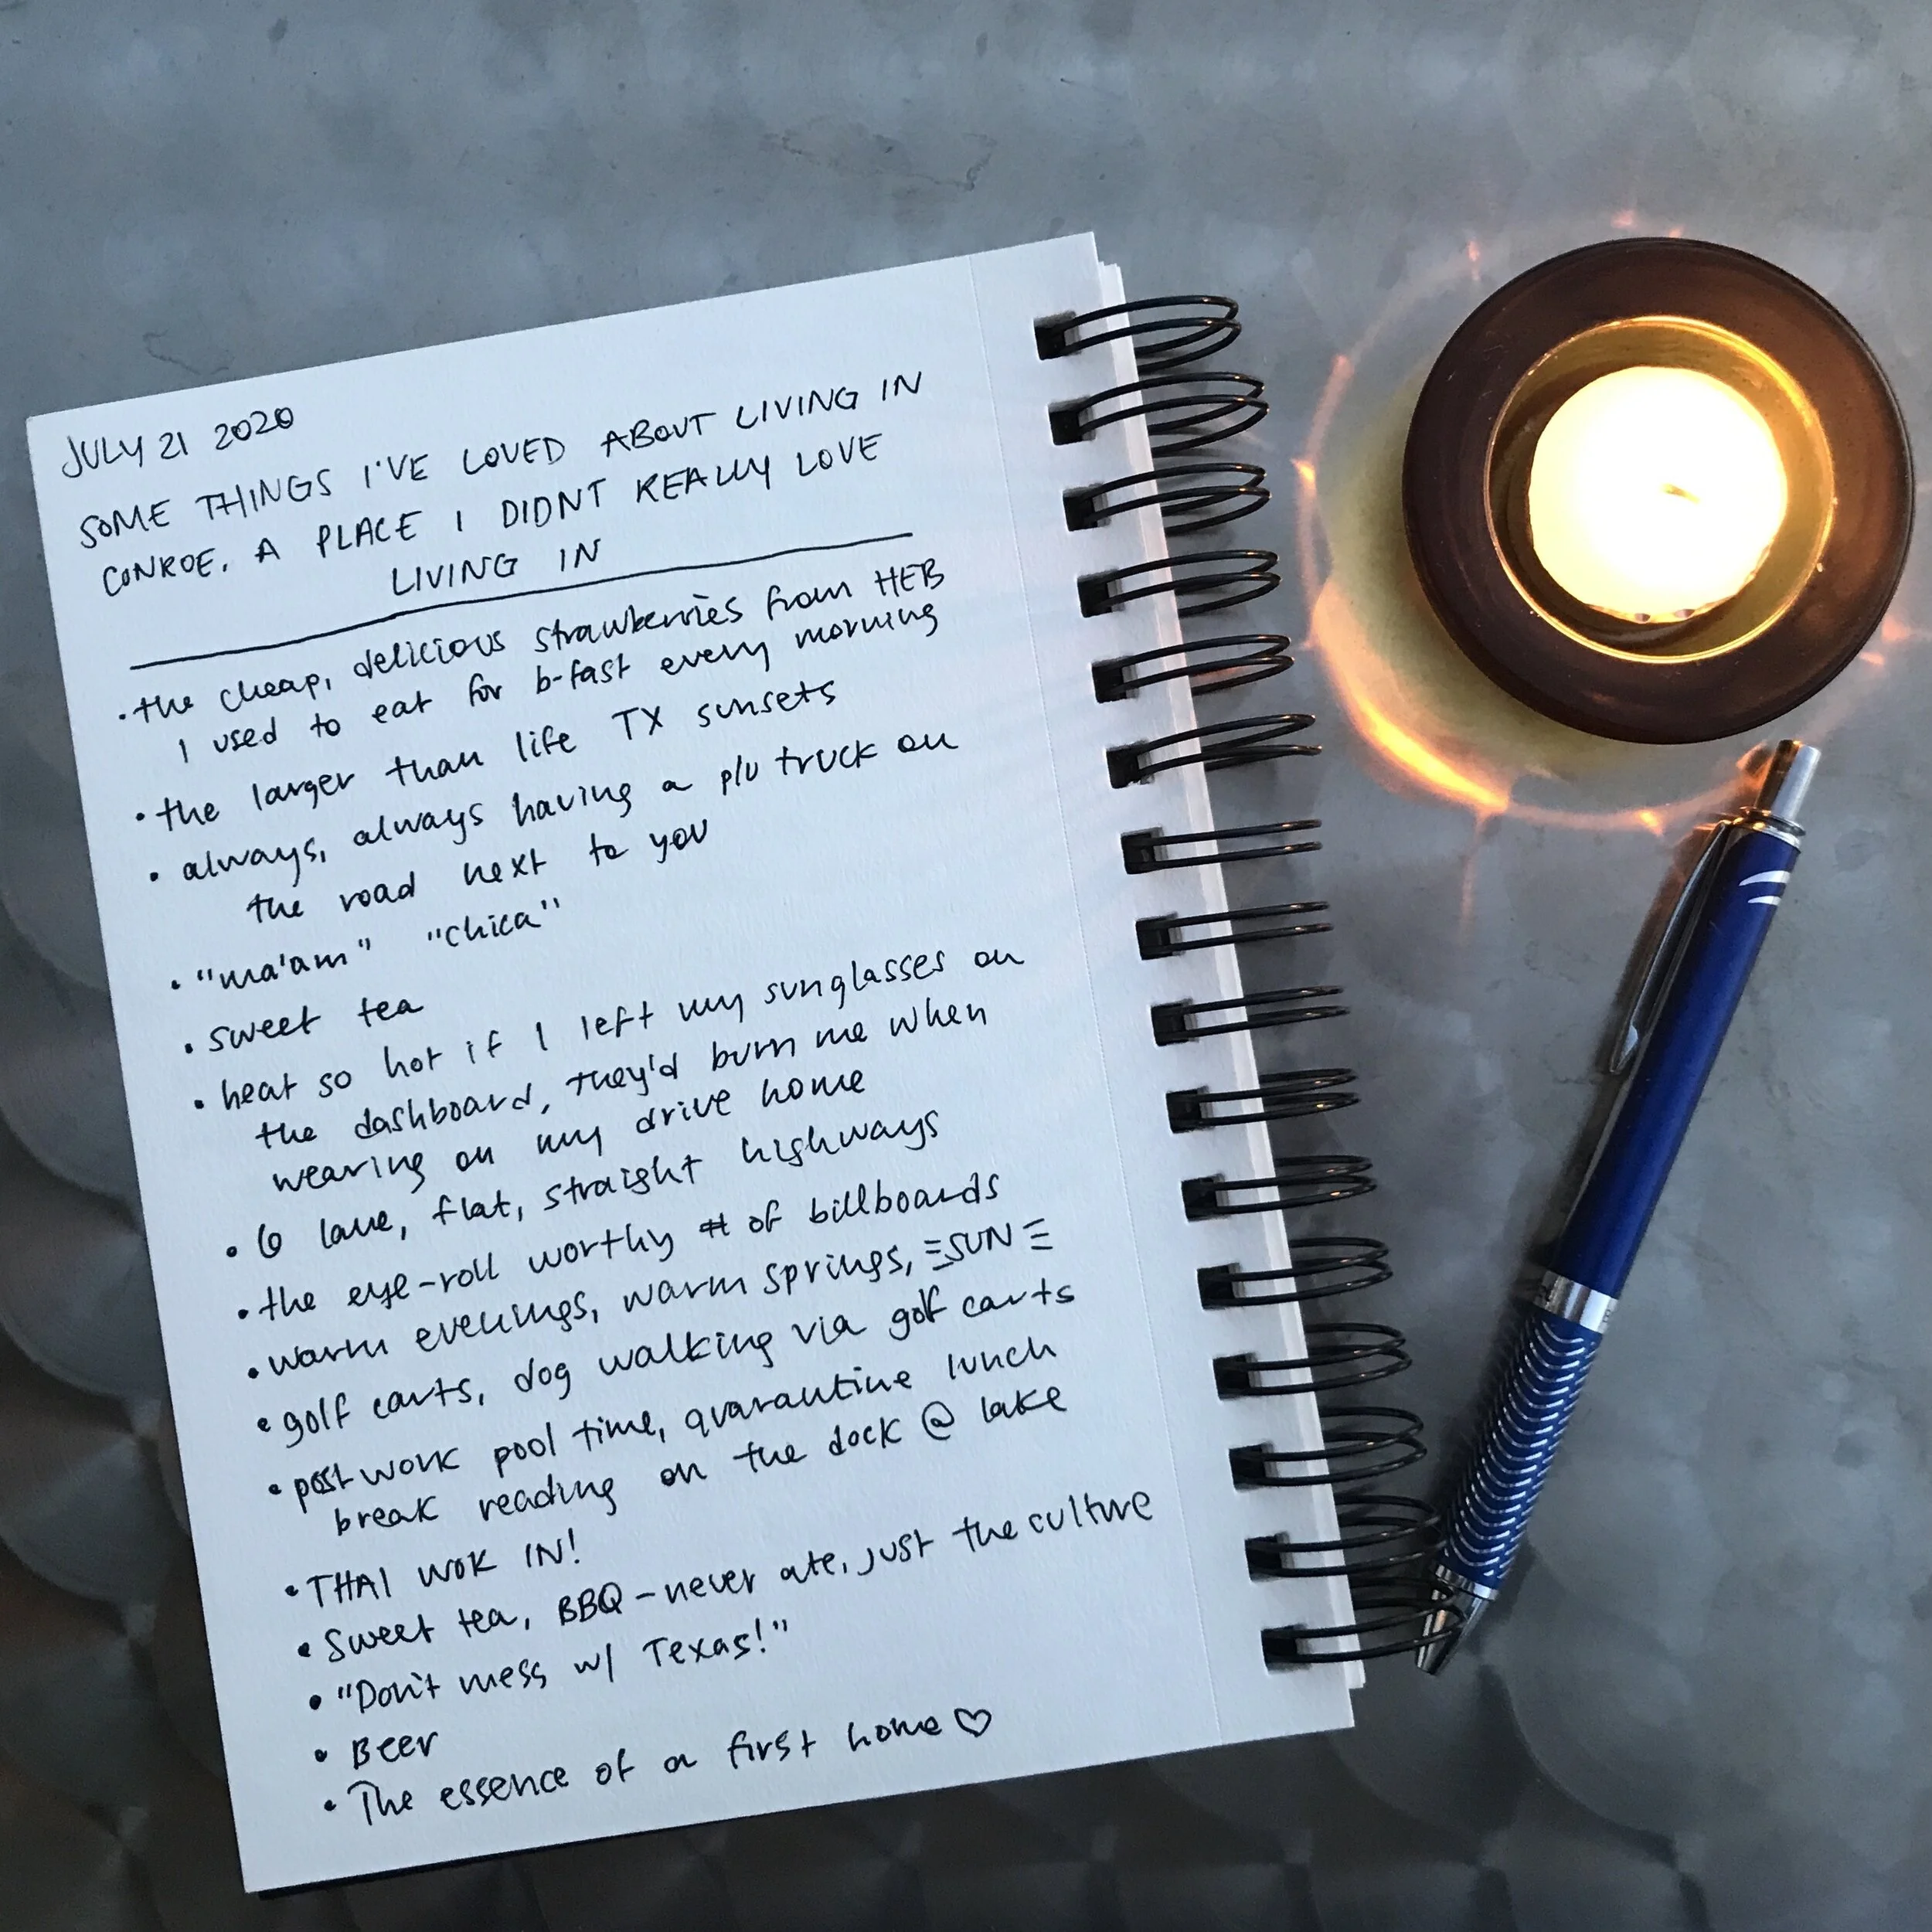 JULY 21 2020
SOME THINGS I'VE LOVED ABOUT LIVING IN
CONROE, A PLACE I DIDNT REALLY LOVE
LIVING IN
• the cheap, delicious strawberries from HEB
I used to eat for b-fast every morning
• the larger than life TX sunsets
• always, always having a p/u truck on
the road next to you
• "ma'am" "chica"
• sweet tea
• heat so hot if I left my sunglasses on
the dashboard, they'd burn me when
wearing on my drive home
• 6 lane, flat, straight highways
• the eye-roll worthy # of billboards
• warm evenings, warm springs, SUN
• golf carts, dog walking via golf carts
• post work pool time, quarantine lunch
break reading on the dock @ lake
• THAI WOK IN!
• Sweet tea, BBQ - never ate, just the culture
• "Don't mess w/ Texas!"
• Beer
• The essence of a first home ♡